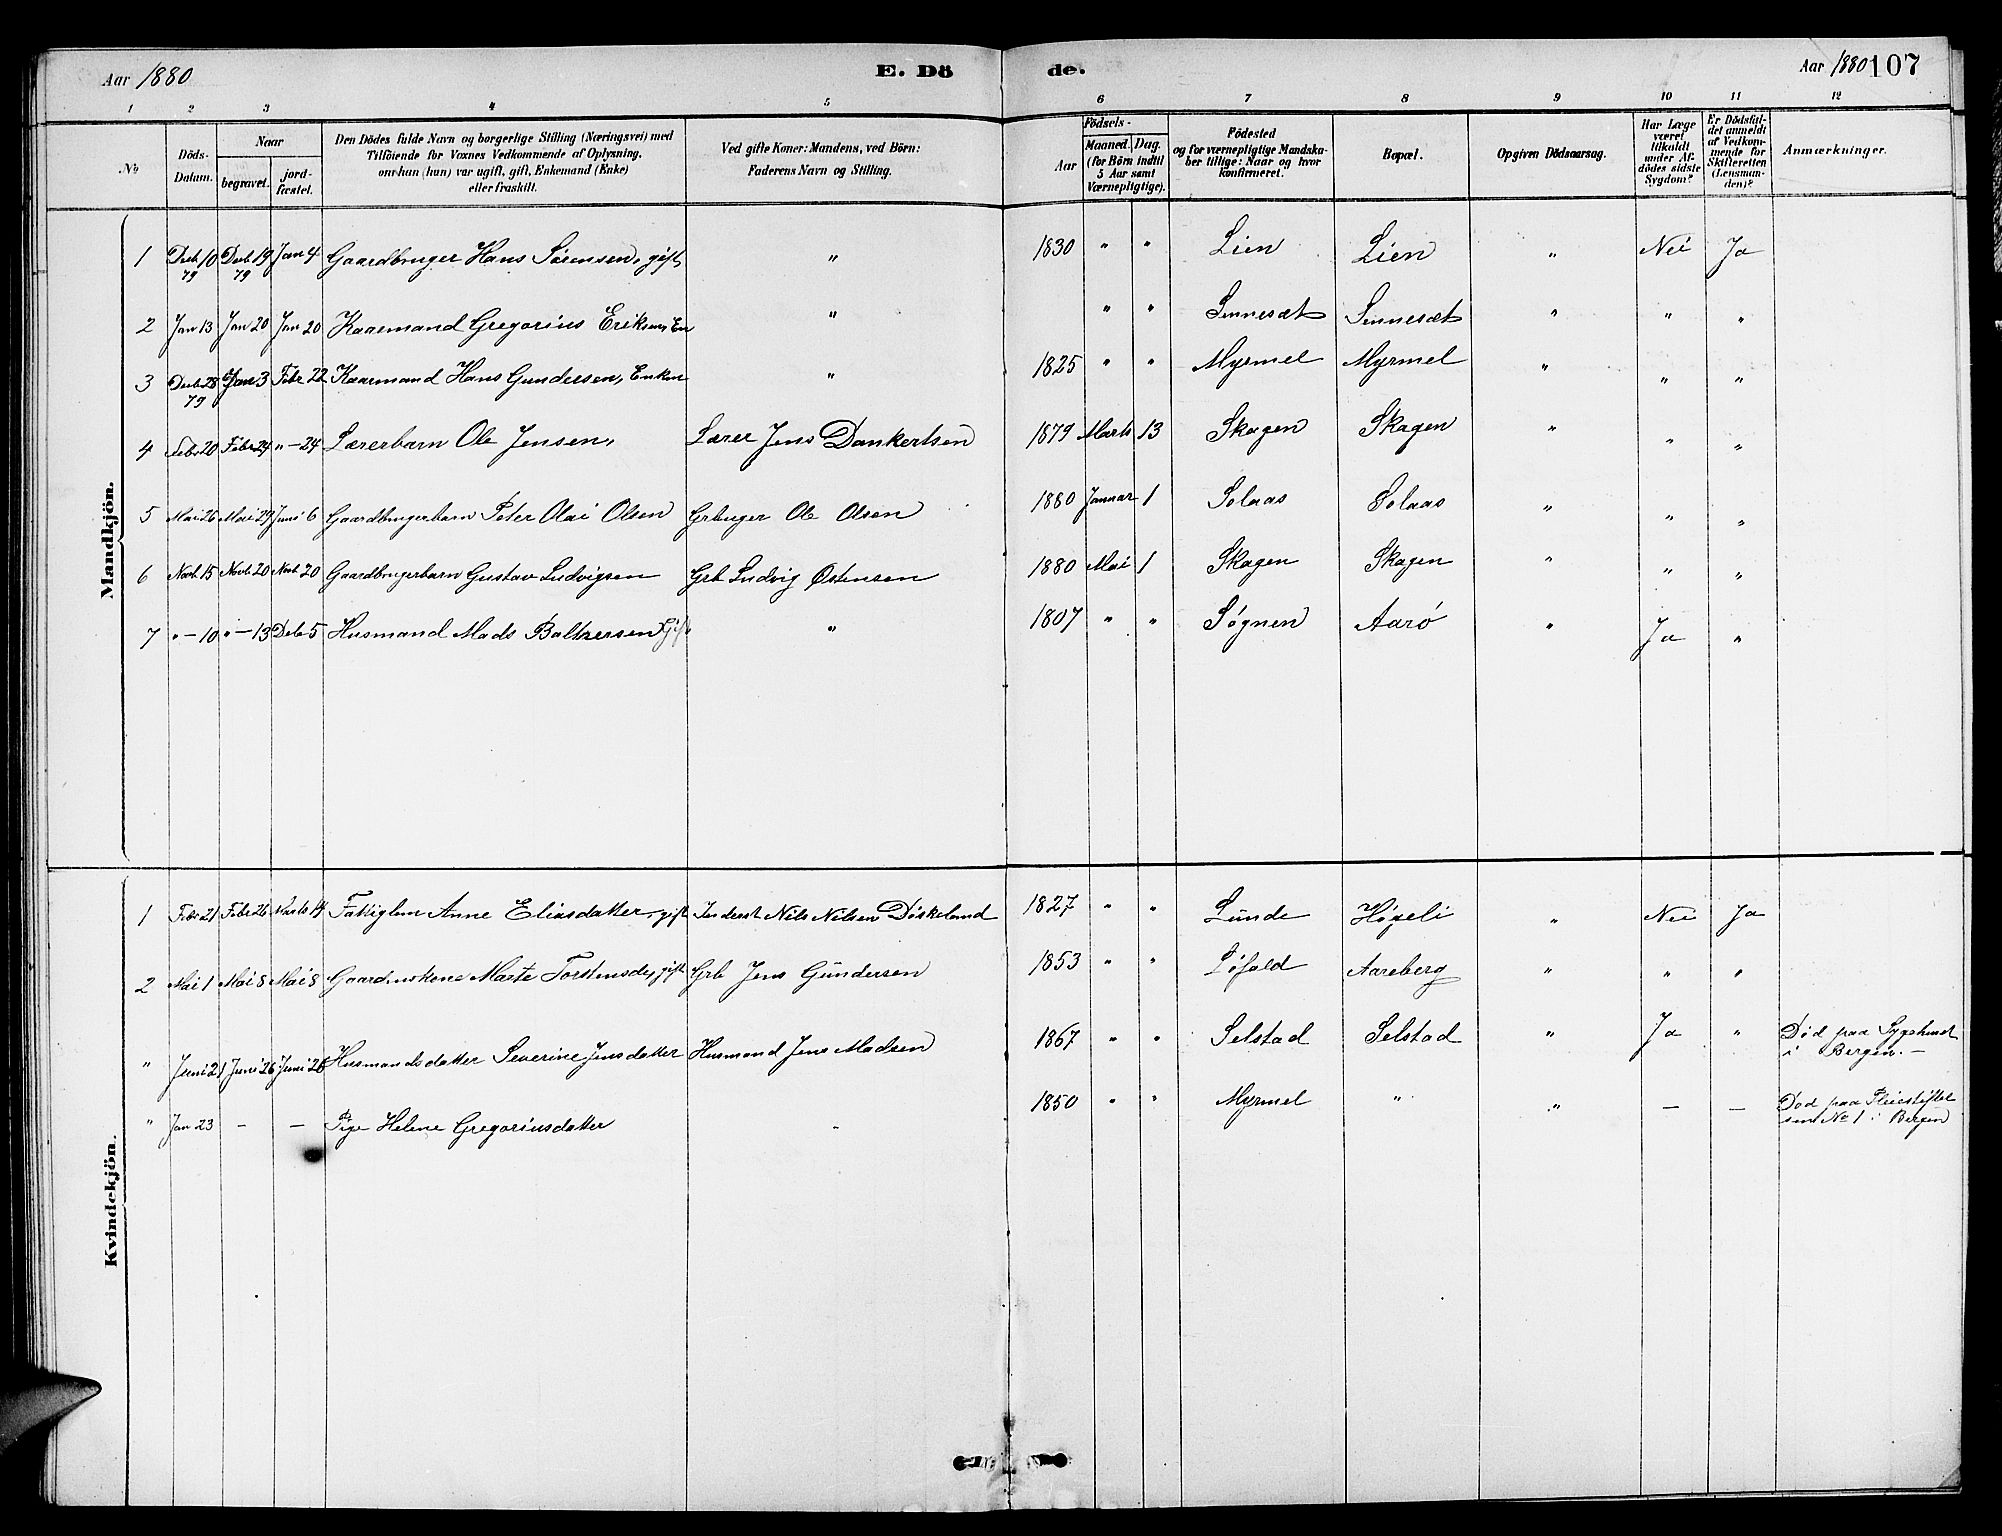 Aar 1880
E. Dö de.
Aar 1880 107
1 2 3 4 5 6 7 8 9 10 11 12
No
Döds-
Datum.
Naar
begravet.
jord-
fæstet.
Den Dödes fulde Navn og borgerlige Stilling (Næringsvei) med
Tilföiende for Voxnes Vedkommende af Oplysning,
om han (hun) var ugift, gift, Enkemand (Enke)
eller fraskilt.
Ved gifte Koner: Mandens, ved Börn:
Faderens Navn og Stilling.
Födsels-
Aar
Maaned. Dag.
(for Börn indtil
5 Aar samt
Værnepligtige).
Födested
og for værnepligtige Mandska-
ber tillige: Naar og hvor
konfirmeret.
Bopæl.
Opgiven Dödsaarsag.
Har Læge
været
tilkaldt
under Af-
dödes sidste
Sygdom?
Er Dödsfal-
det anmeldt
af Vedkom-
mende for
Skifteretten
(Lensman-
den)?
Anmærkninger.
Mandkjön.
1 Decb 10 79 Decb 19 79 Jan 4 Gaardbruger Hans Sørensen, gift " 1830 " " Lien Lien " Nei Ja
2 Jan 13 Jan 20 Jan 20 Kaarmand Gregorius Eriksen, En " " " Sennesæt Sennesæt " " "
3 Decb 28 79 Jan 3 Febr 22 Kaarmand Hans Gundersen, Enkm " 1825 " " Myrmel Myrmel " " "
4 Febr 20 Febr 24 " - 24 Lærerbarn Ole Jensen, Lærer Jens Dankertsen 1879 Marts 13 Skagen Skagen " " "
5 Mai 26 Mai 29 Juni 6 Gaardbrugerbarn Peter Olai Olsen Grbruger Ole Olsen 1880 Januar 1 Solaas Solaas " " "
6 Novb 15 Novb 20 Novb 20 Gaardbrugerbarn Gustav Ludvigsen Grb Ludvig Østensen 1880 Mai 1 Skagen Skagen " " "
7 " - 10 " - 13 Decb 5 Husmand Mads Baltzersen Gift " 1807 " " Søgnen Aarø " Ja "
Kvindekjön.
1 Febr 21 Febr 26 Marts 14 Fattiglem Anne Eliasdatter, gift Inderst Nils Nilsen Døskeland 1827 " " Lunde Høgeli " Nei Ja
2 Mai 1 Mai 8 Mai 8 Gaardmskone Marte Torstensdtr, gift Grb Jens Gundersen 1853 " " Løfald Aareberg " " "
" Juni 21 Juni 26 Juni 26 Husmandsdatter Severine Jensdatter Husmand Jens Madsen 1867 " " Selstad Selstad " Ja " Død paa Sygehuset
i Bergen. -
" Jan 23 - - Pige Helene Gregoriusdatter " 1850 " " Myrmel " " - - Død paa Pleiestiftel
sen No 1 i Bergen